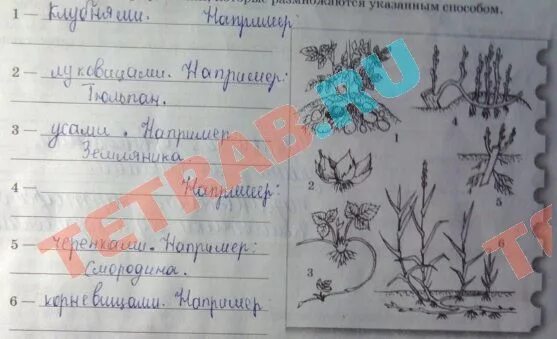 которые размножаются указанным способом.
1 – клубнями. Например:
2 – луковицами. Например:
Тюльпан.
3 – усами. Например
Земляника
4 – Например:
5 – черенками. Например:
Смородина.
6 – корневищами. Например
1
4
2
5
3
6
TETRAB.RU